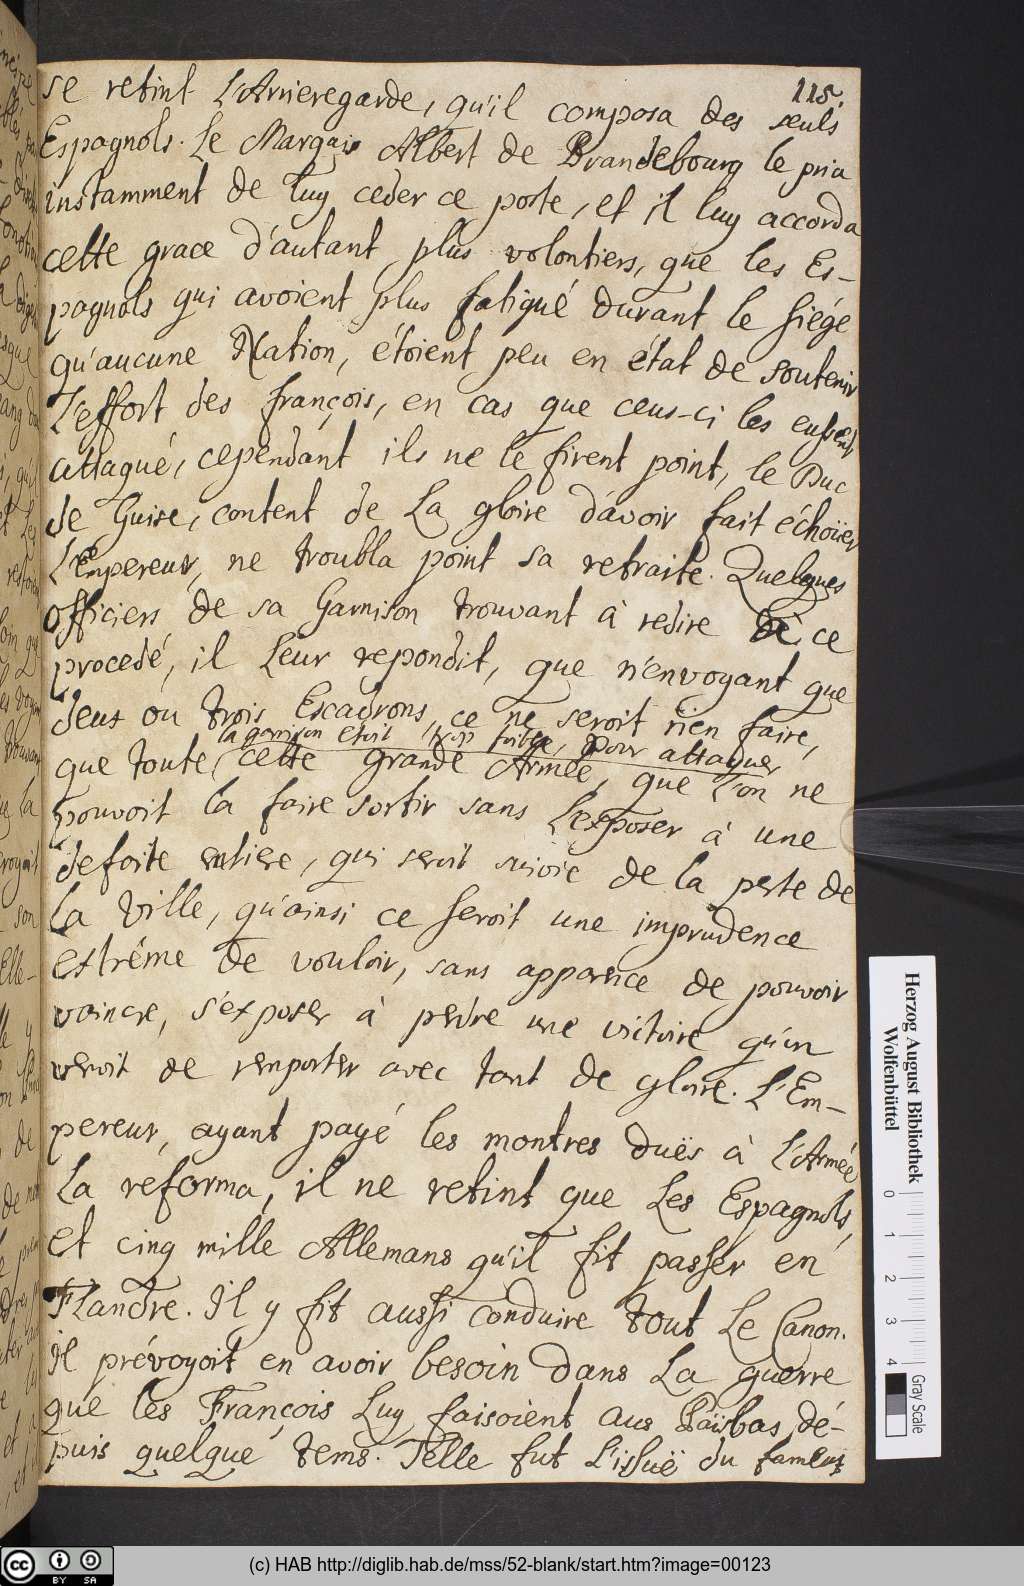 115.
se retint L'Arrieregarde, qu'il composa des seuls
Espagnols. Le Marqais Albert de Brandebourg le pria
instamment de luy ceder ce poste, et il luy accorda
cette grace d'autant plus volontiers, que les Es-
pagnols qui avoient plus fatigué durant le siége
qu'aucune Nation, étoient peu en état de soutenir
L'effort des françois, en cas que ceus-ci les eussent
attaqué, cependant ils ne le firent point, le Duc
de Guise, content de La gloire d'avoir fait échoüer
L'Empereur, ne troubla point sa retraite. Quelques
officiers de sa Garnison trouvant à redire à ce
procedé, il Leur repondit, que n'envoyant que
deus ou trois Escadrons, ce ne seroit rien faire,
la garnison etoit trop foible, pour attaquer
que toute cette grande Armée, que l'on ne
pouvoit la faire sortir sans L'exposer à une
defaite entiere, qui seroit suivie de la perte de
La Ville, qu'ainsi ce seroit une imprudence
extrême de vouloir, sans apparence de pouvoir
vaincre, s'exposer à perdre une victoire qu'on
venoit de remporter avec tant de gloire. L'Em-
pereur, ayant payé les montres duës à L'Armée
La reforma, il ne retint que Les Espagnols,
et cinq mille Allemans qu'il fit passer en
Flandre. Il y fit aussi conduire tout Le Canon.
Il prévoyoit en avoir besoin dans La guerre
que les François Luy faisoient aus Païsbas dé-
puis quelque tems. Telle fut L'issuë du fameux
Herzog August Bibliothek
Wolfenbüttel
0 1 2 3 4
Gray Scale
CC BY SA
(c) HAB http://diglib.hab.de/mss/52-blank/start.htm?image=00123